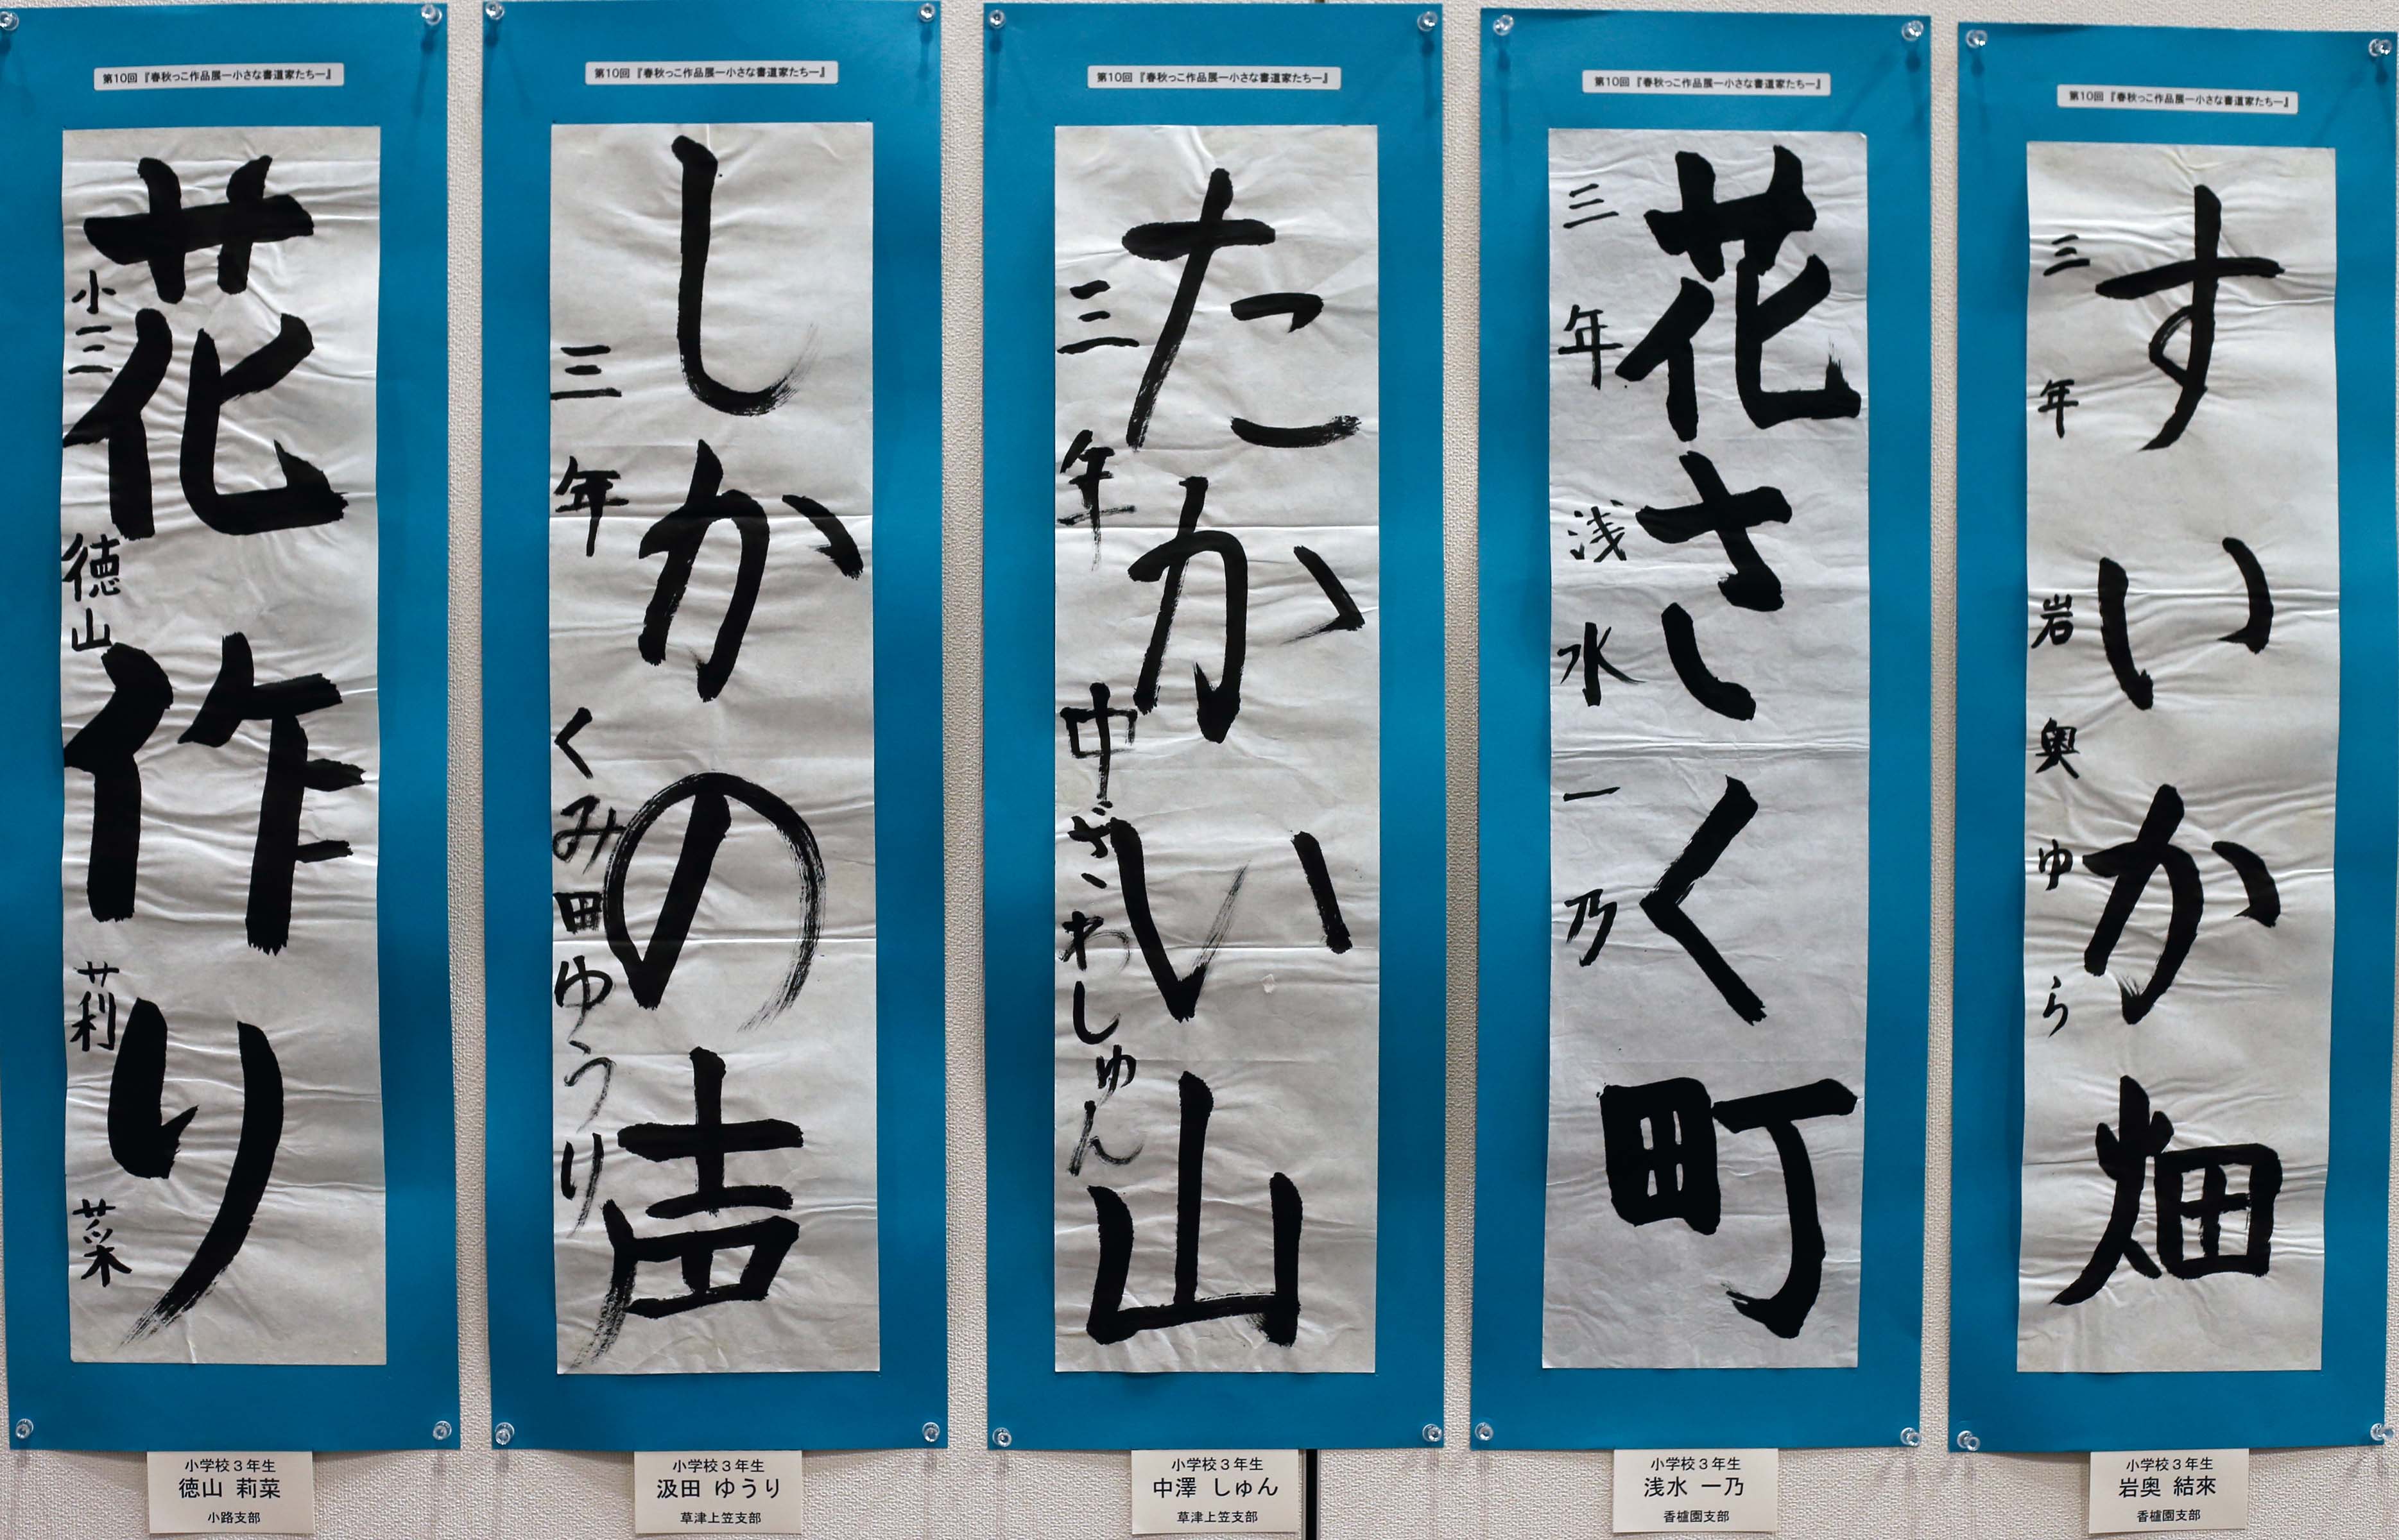 第10回『春秋っこ作品展―小さな書道家たち―』
花作り
小三 徳山 莉菜
小学校3年生
徳山 莉菜
小路支部
第10回『春秋っこ作品展―小さな書道家たち―』
しかの声
三年 くみ田ゆうり
小学校3年生
汲田 ゆうり
草津上笠支部
第10回『春秋っこ作品展―小さな書道家たち―』
たかい山
三年 中ざわしゅん
小学校3年生
中澤 しゅん
草津上笠支部
第10回『春秋っこ作品展―小さな書道家たち―』
花さく町
三年 浅水一乃
小学校3年生
浅水 一乃
香櫨園支部
第10回『春秋っこ作品展―小さな書道家たち―』
すいか畑
三年 岩奥ゆら
小学校3年生
岩奥 結來
香櫨園支部